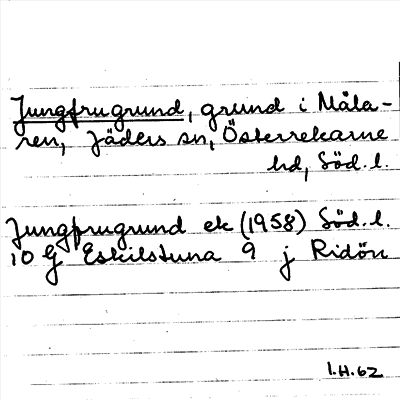 Jungfrugrund, grund i Mäla-
ren, Jäders sn, Österrekarne
hd, Söd. l.
Jungfrugrund ek (1958) Söd. l.
10 G Eskilstuna 9 j Ridön
I.H.62